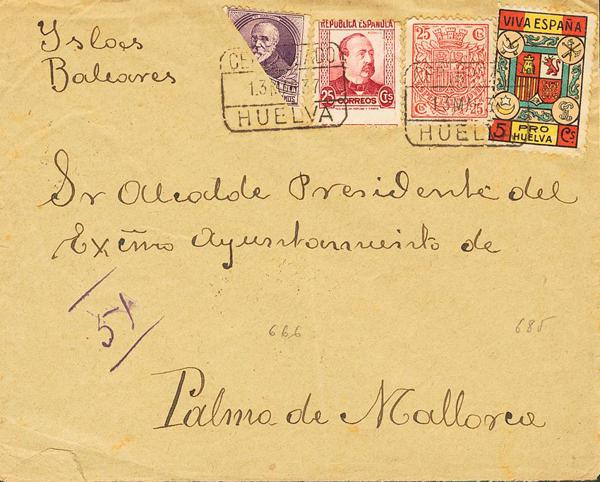 Yslas
Baleares
REPUBLICA ESPAÑOLA
25 CORREOS Cts
25 Cs
VIVA ESPAÑA
5 PRO HUELVA Cs
13 MAR 37
HUELVA
HUELVA
Sr Alcalde Presidente del
Exċmo Ayuntamiento de
5x
666
685
Palma de Mallorca